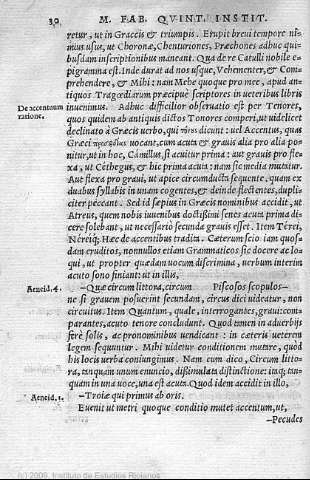 30 M. FAB. QVINT. INSTIT.
retur, ut in Græcis & triumpis. Erupit brevi tempore ni=
mius usus, ut Choronæ, Chenturiones, Præchones adhuc qui=
busdam inscriptionibus maneant. Qua de re Catulli nobile e=
pigramma est. Inde durat ad nos usque, Vehementer, & Com=
prehendere, & Mihi: nam Mehe quoque pro me, apud an=
tiquos Tragœdiarum præcipuè scriptores in ueteribus libris
De accentuum
ratione.
inuenimus. Adhuc difficilior obseruatio est per Tenores,
quos quidem ab antiquis dictos Tonores comperi, ut uidelicet
declinato à Græcis uerbo, qui τόνους dicunt: uel Accentus, quas
Græci προσῳδίας uocant, cum acuta & grauis alia pro alia po=
nitur, ut in hoc, Cámillus, si acuitur prima: aut grauis pro fle=
xa, ut Céthegus, & hic prima acuta: nam sic media mutatur.
Aut flexa pro graui, ut apice circumducta sequente. quam ex
duabus syllabis in unam cogentes, & deinde flectentes, dupli=
citer peccant. Sed id sæpius in Græcis nominibus accidit, ut
Atreus, quem nobis iuuenibus doctissimi senes acuta prima di=
cere solebant, ut necessariò secunda grauis esset. Item Térei,
Néreiq́; Hæc de accentibus tradita. Cæterum scio iam quos=
dam eruditos, nonnullos etiam Grammaticos sic docere ac lo=
qui, ut propter quædam uocum discrimina, uerbum interim
acuto sono finiant: ut in illis,
Aeneid. 4. —Quæ circum littora, circum Piscosos scopulos—
ne si grauem posuerint secundam, circus dici uideatur, non
circuitus. Item Quantum, quale, interrogantes, graui: com=
parantes, acuto tenore concludunt. Quod tamen in aduerbijs
ferè solis, ac pronominibus uendicant: in cæteris ueterem
legem sequuntur. Mihi uidetur conditionem mutare, quòd
his locis uerba coniungimus. Nam cum dico, Circum litto=
ra, tanquam unum enuncio, dißimulata distinctione: itaq; tan=
quam in una uoce, una est acuta. Quod idem accidit in illo,
Aeneid. 1. —Troiæ qui primus ab oris.
Euenit ut metri quoque conditio mutet accentum, ut,
—Pecudes
(c) 2009, Instituto de Estudios Riojanos